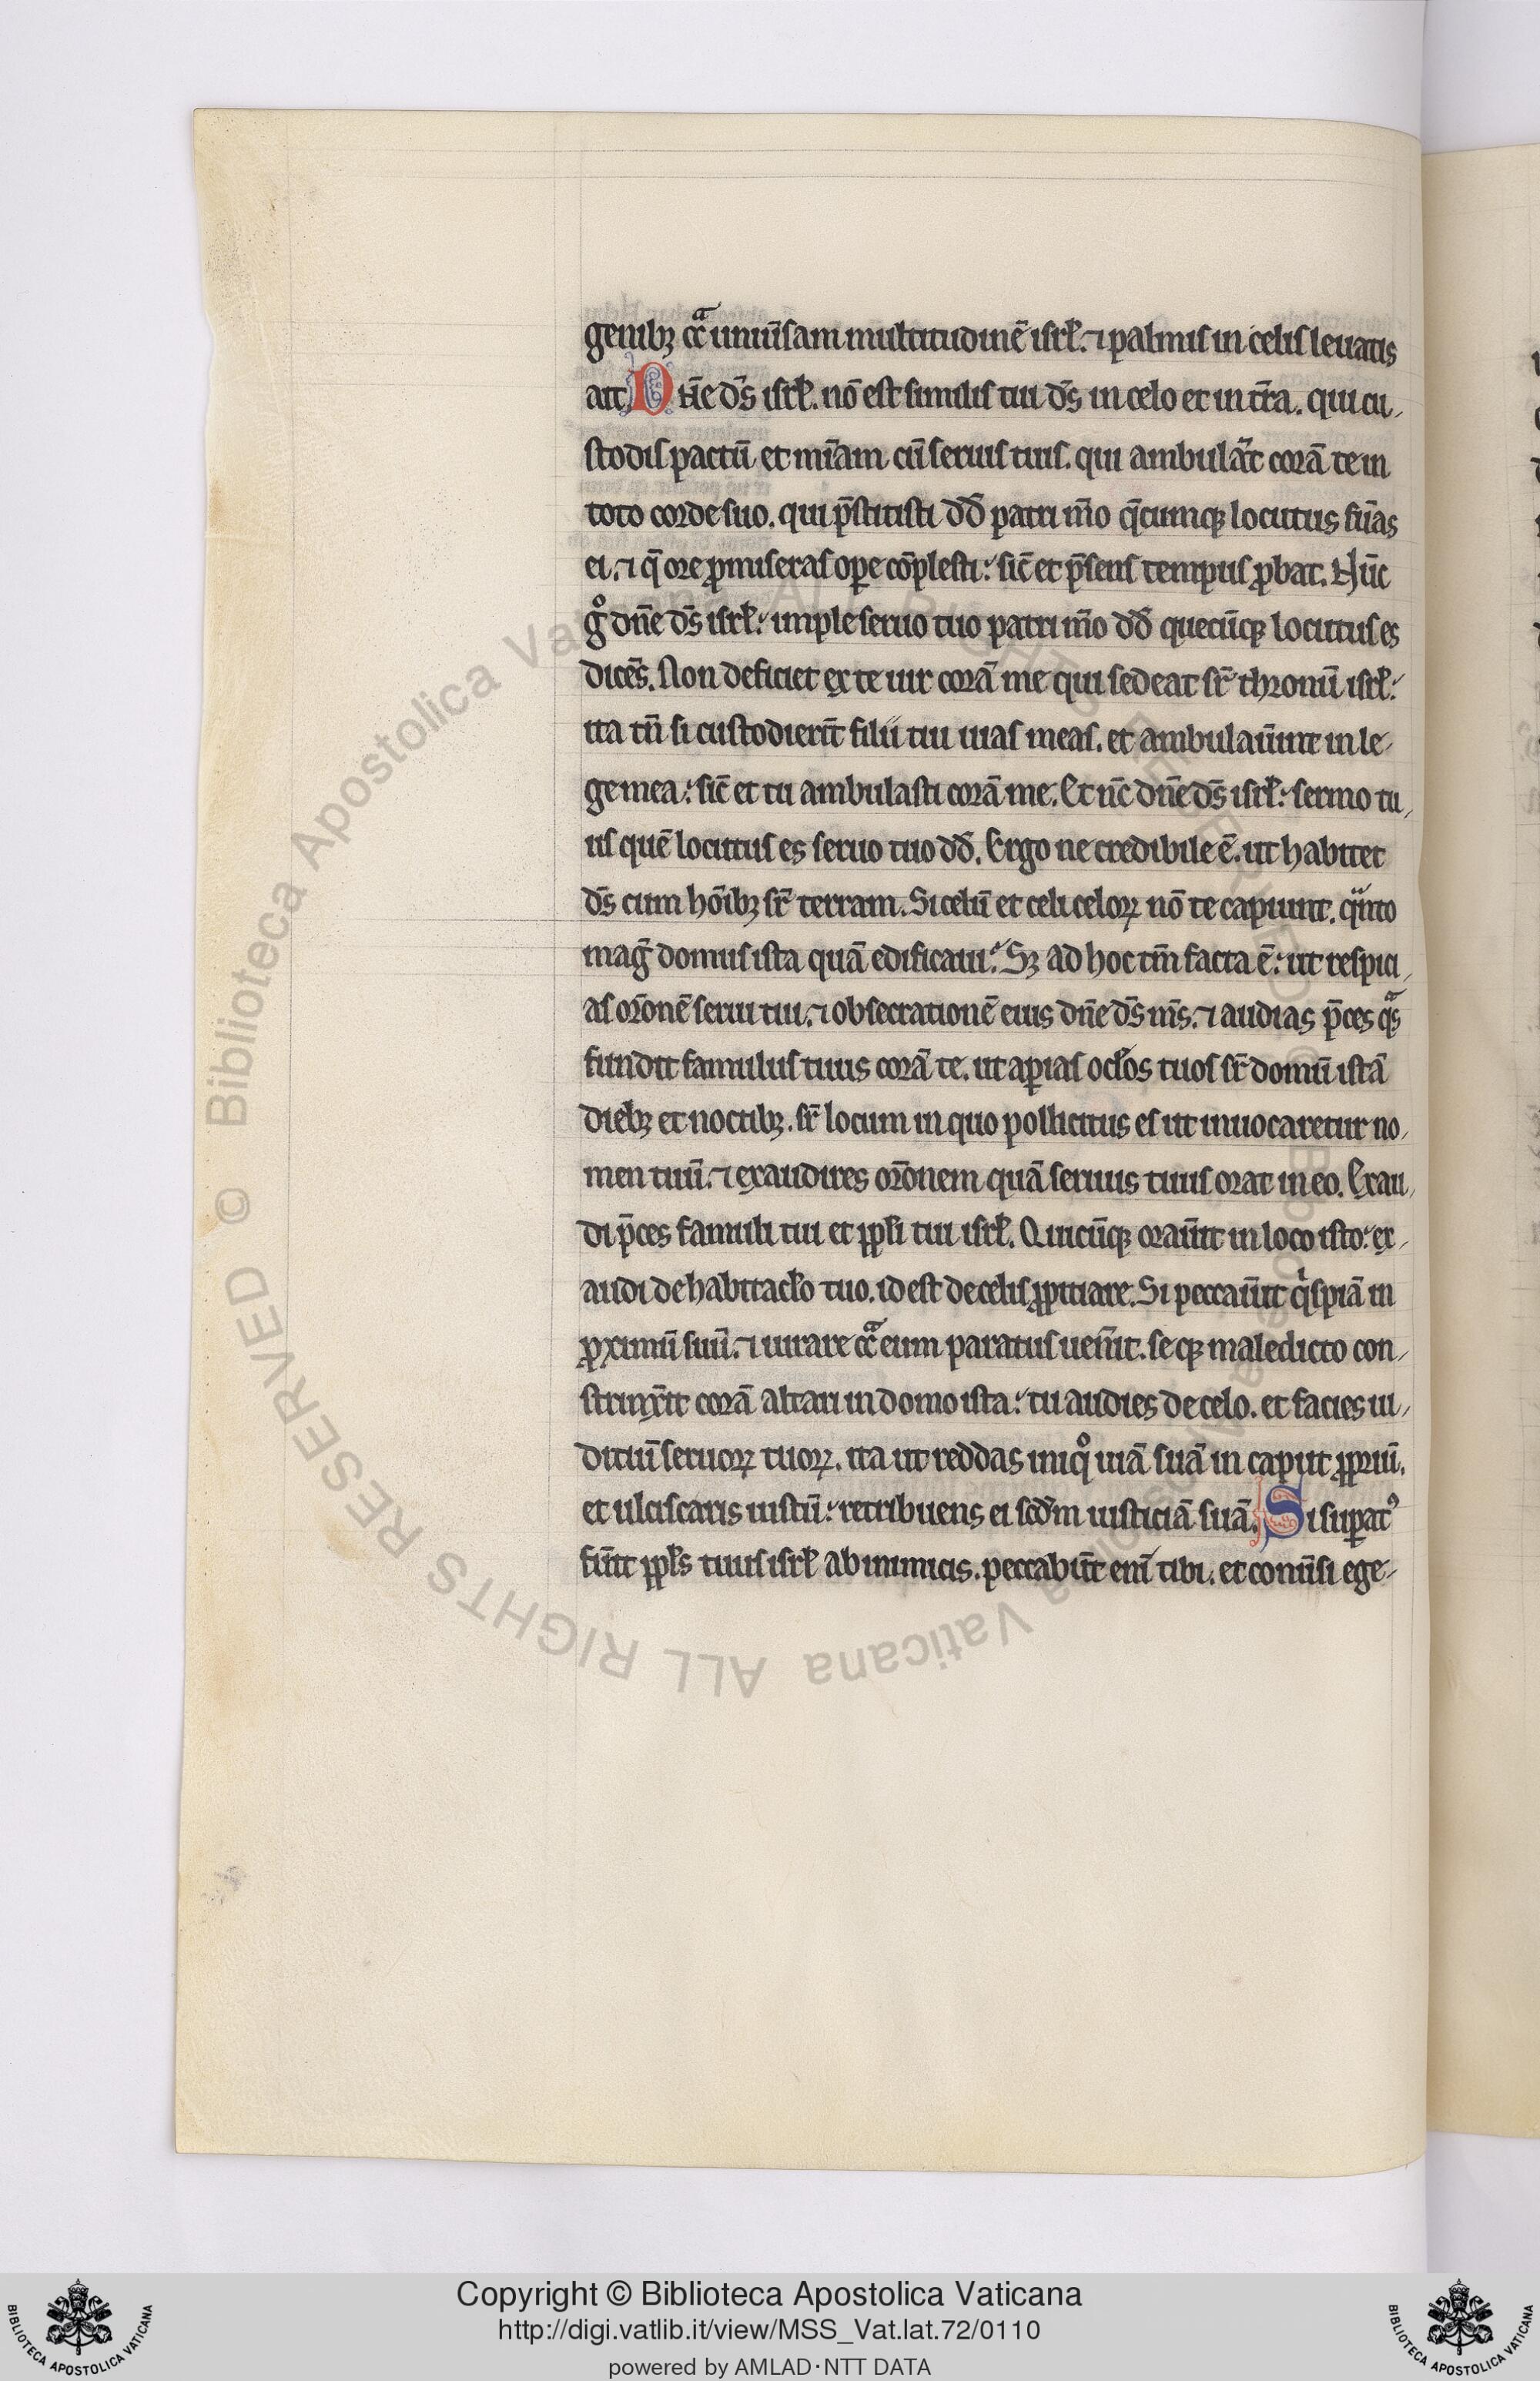 genibꝫ cͨᵃ uniũsam multitudinẽ isrł. ⁊ palmis in celis leuatis
ait. Dñe ds̃ isrł. nõ est similis tui ds̃ in celo et in tr̃a. qui cu-
stodis pactũ et mĩam cũ seruis tuis. qui ambulãt corã te in
toto corde suo. qui p̃stitisti dd̃ patri mõ q̃cumqꝫ locutus fũas
ei. ⁊ q̃ ore ꝓmiseras oꝑe cõplesti: sic̃ et p̃sens tempus ꝓbat. Nũc
gᵒ dñe ds̃ isrł: imple seruo tuo patri mõ dd̃ quecũqꝫ locutus es
dicẽs. Non deficiet ex te uir corã me qui sedeat sr̃ thronũ isrł:
ita tñ si custodierĩt filii tui uias meas. et ambulaũint in le-
ge mea: sic̃ et tu ambulasti corã me. Et nũc dñe ds̃ isrł: sermo tu-
us quẽ locutus es seruo tuo dd̃. Ergo ne credibile ẽ. ut habitet
ds̃ cum hoĩbꝫ sr̃ terram. Si celũ et celi celoꝝ nõ te capiunt. qⁱnto
mag̃ domus ista quã edificaui: Sꝫ ad hoc tm̃ facta ẽ: ut respici-
as or̃onẽ serui tui. ⁊ obsecrationẽ eius dñe ds̃ ms̃. ⁊ audias p̃ces qᵃs
fundit famulus tuus corã te. ut aꝑias ocłos tuos sr̃ domũ istã
diebꝫ et noctibꝫ. sr̃ locum in quo pollicitus es ut inuocaretur no-
men tuũ. ⁊ exaudires or̃onem quã seruus tuus orat in eo. Exau-
di p̃ces famuli tui et ppłi tui isrł. Quicũqꝫ oraũit in loco isto: ex-
audi de habitacło tuo. id est de celis ꝓpitiare. Si peccaũit qⁱspiã in
ꝓximũ suũ. ⁊ iurare cͨᵃ eum paratus uen̄it. seqꝫ maledicto con-
strinx̃it corã altari in domo ista: tu audies de celo. et facies iu-
diciũ seruoꝝ tuoꝝ. ita ut reddas iniqᵒ uiã suã in caput ꝓpriũ.
et ulciscaris iustũ: retribuens ei scd̃m iusticiã suã. Si suꝑatꝰ
fũit ppłs tuus isrł ab inimicis. peccabũt eni᷈ tibi. et conũsi ege-
Copyright © Biblioteca Apostolica Vaticana
http://digi.vatlib.it/view/MSS_Vat.lat.72/0110
powered by AMLAD·NTT DATA
© Biblioteca Apostolica Vaticana ALL RIGHTS RESERVED
BIBLIOTECA APOSTOLICA VATICANA
BIBLIOTECA APOSTOLICA VATICANA